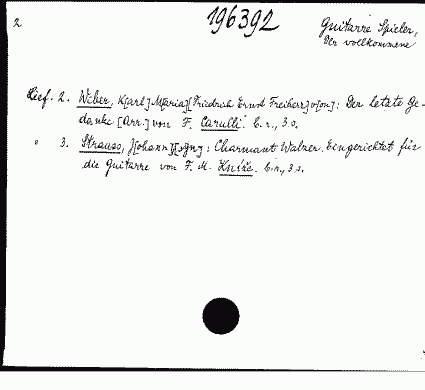 2
196392
Guitarre Spieler,
Der vollkommene
Lief. 2. Weber, K[arl] M[aria][Friedrich Ernst Freiherr] v[on]: Der letzte Ge-
danke [Arr.] von F. Carulli. C. r., 3 S.
" 3. Strauss, J[ohann][sen.]: Charmant Walzer. Eingerichtet für
die Guitarre von F. M. Kníže. C. r., 3 S.